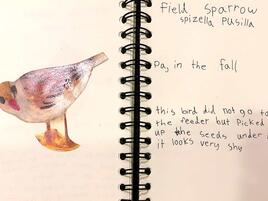 field sparrow
spizella pusilla
Pa, in the fall
this bird did not go to
the feeder but Picked
up the seeds under
it looks very shy